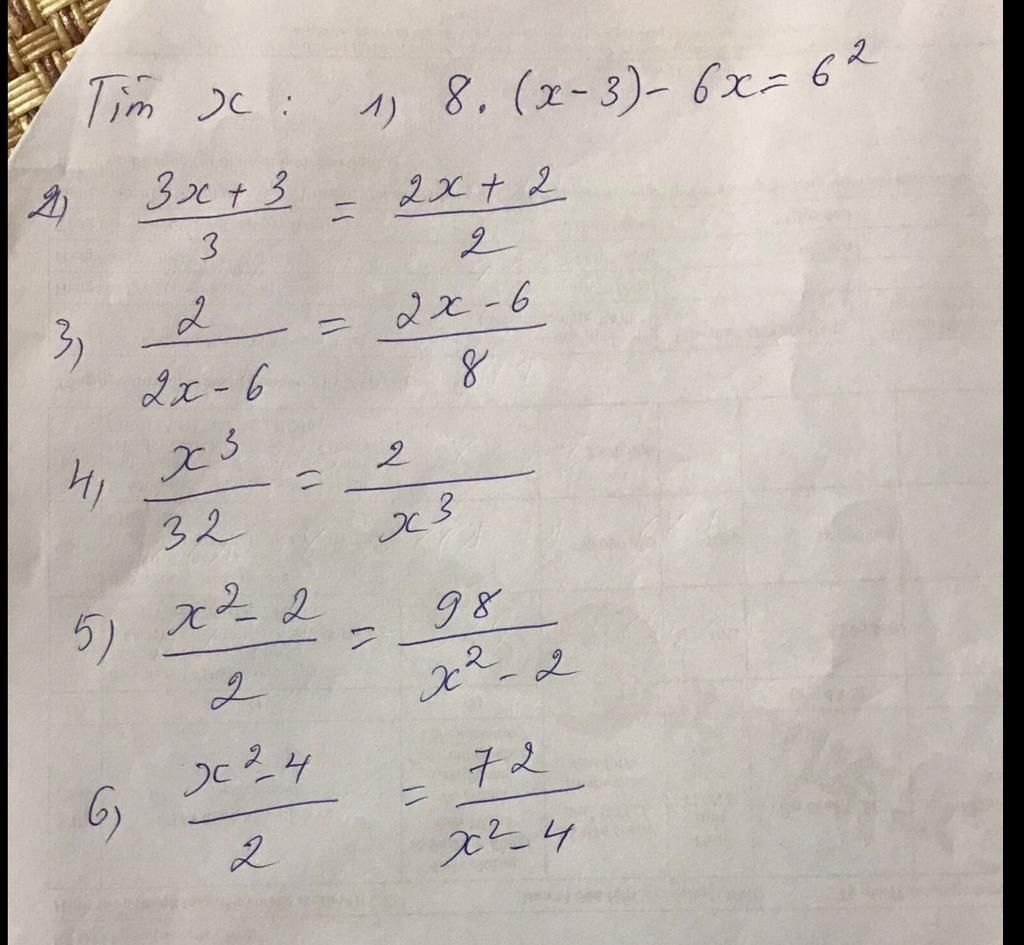 Tìm x : 1) 8. (x-3)- 6x= 6²
2) (3x + 3)/3 = (2x + 2)/2
3) 2/(2x - 6) = (2x - 6)/8
4) x³/32 = 2/x³
5) (x² - 2)/2 = 98/(x² - 2)
6) (x² - 4)/2 = 72/(x² - 4)